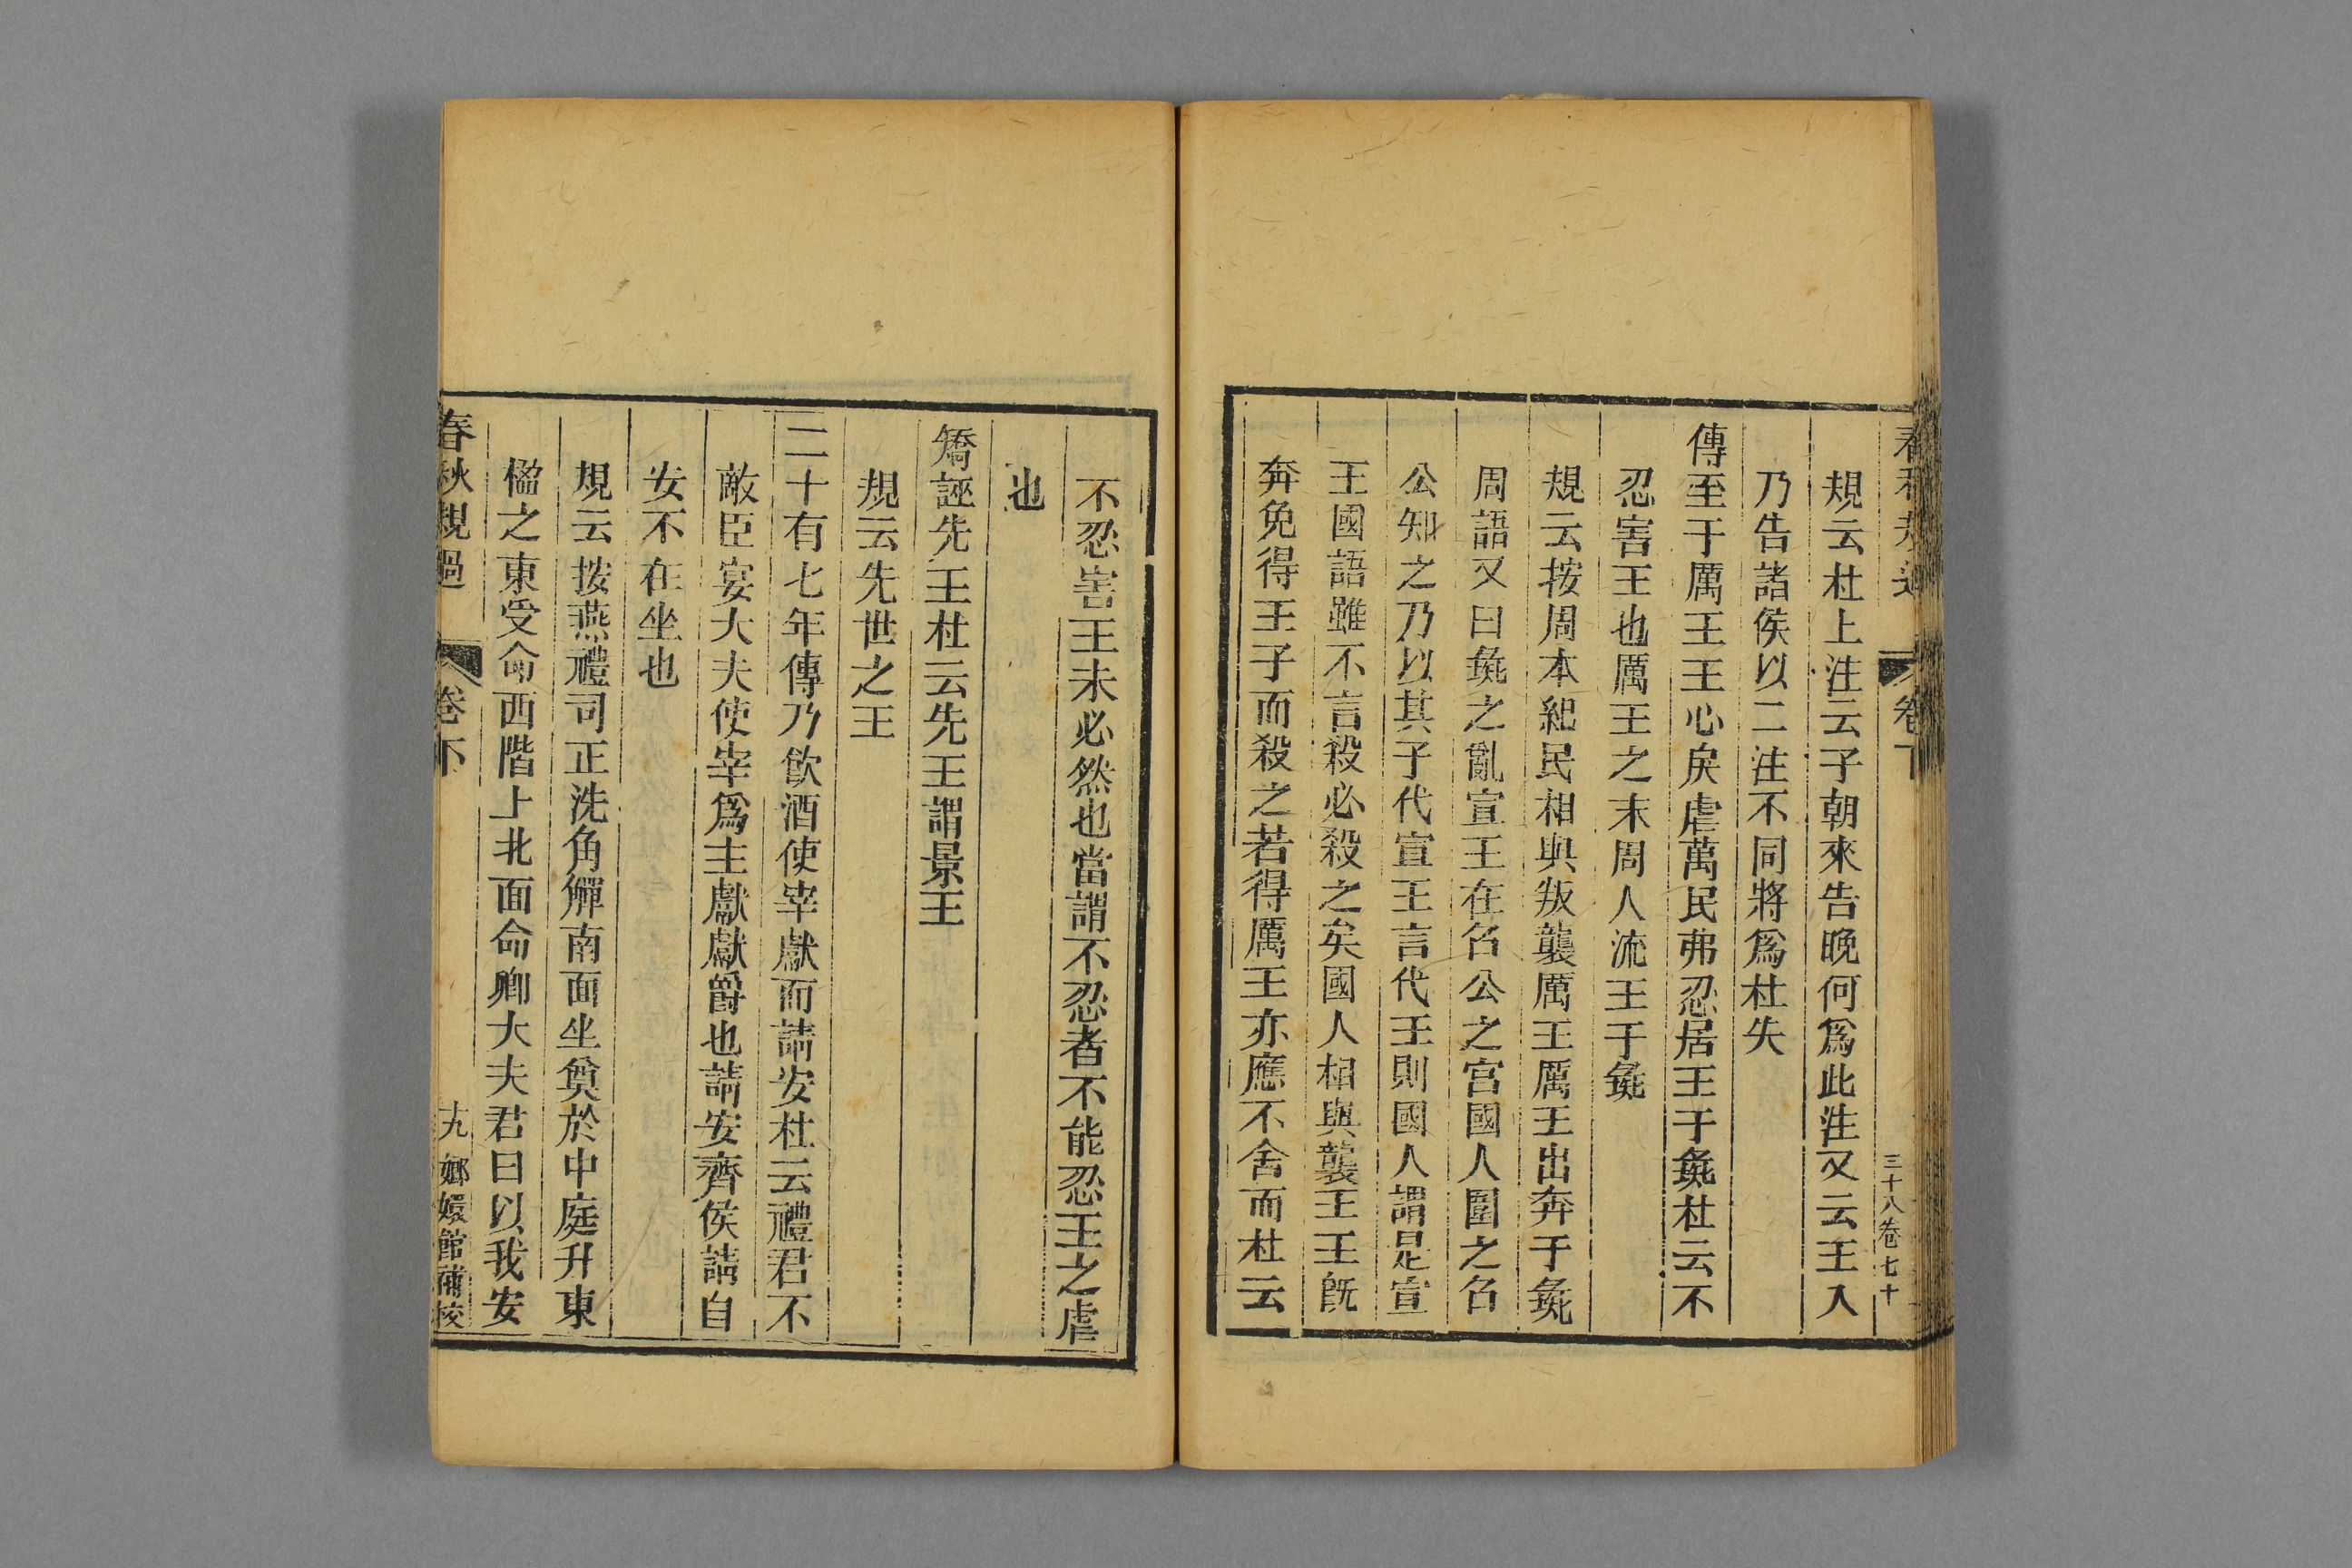 規云杜上注云子朝來告晚何爲此注又云王入
乃告諸侯以二注不同將爲杜失
傳至于厲王王心戾虐萬民弗忍居王于彘杜云不
忍害王也厲王之末周人流王于彘
規云按周本紀民相與叛襲厲王厲王出奔于彘
周語又曰彘之亂宣王在召公之宮國人圍之召
公知之乃以其子代宣王言代王則國人謂是宣
王國語雖不言殺必殺之矣國人相與襲王王旣
奔免得王子而殺之若得厲王亦應不舍而杜云
卷下
三十八卷七十
不忍害王未必然也當謂不忍者不能忍王之虐
也
矯誣先王杜云先王謂景王
規云先世之王
二十有七年傳乃飮酒使宰獻而請安杜云禮君不
敵臣宴大夫使宰爲主獻獻爵也請安齊侯請自
安不在坐也
規云按燕禮司正洗角觶南面坐奠於中庭升東
楹之東受命西階上北面命卿大夫君曰以我安
春秋規過
卷下
九
嫏嬛館補校